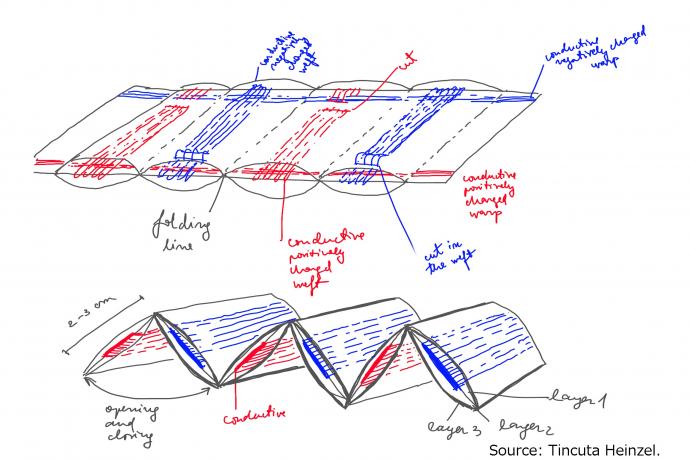 conductive
negatively
charged
weft
cut
conductive
negatively charged
warp
conductive
positively
charged
warp
folding
line
conductive
positively
charged
weft
cut in
the weft
2-3 cm
opening
and
closing
conductive
layer 1
layer 2
layer 3
Source: Tincuta Heinzel.